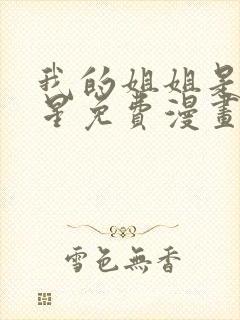 我的姐姐是
星免费漫畫
雪色無香